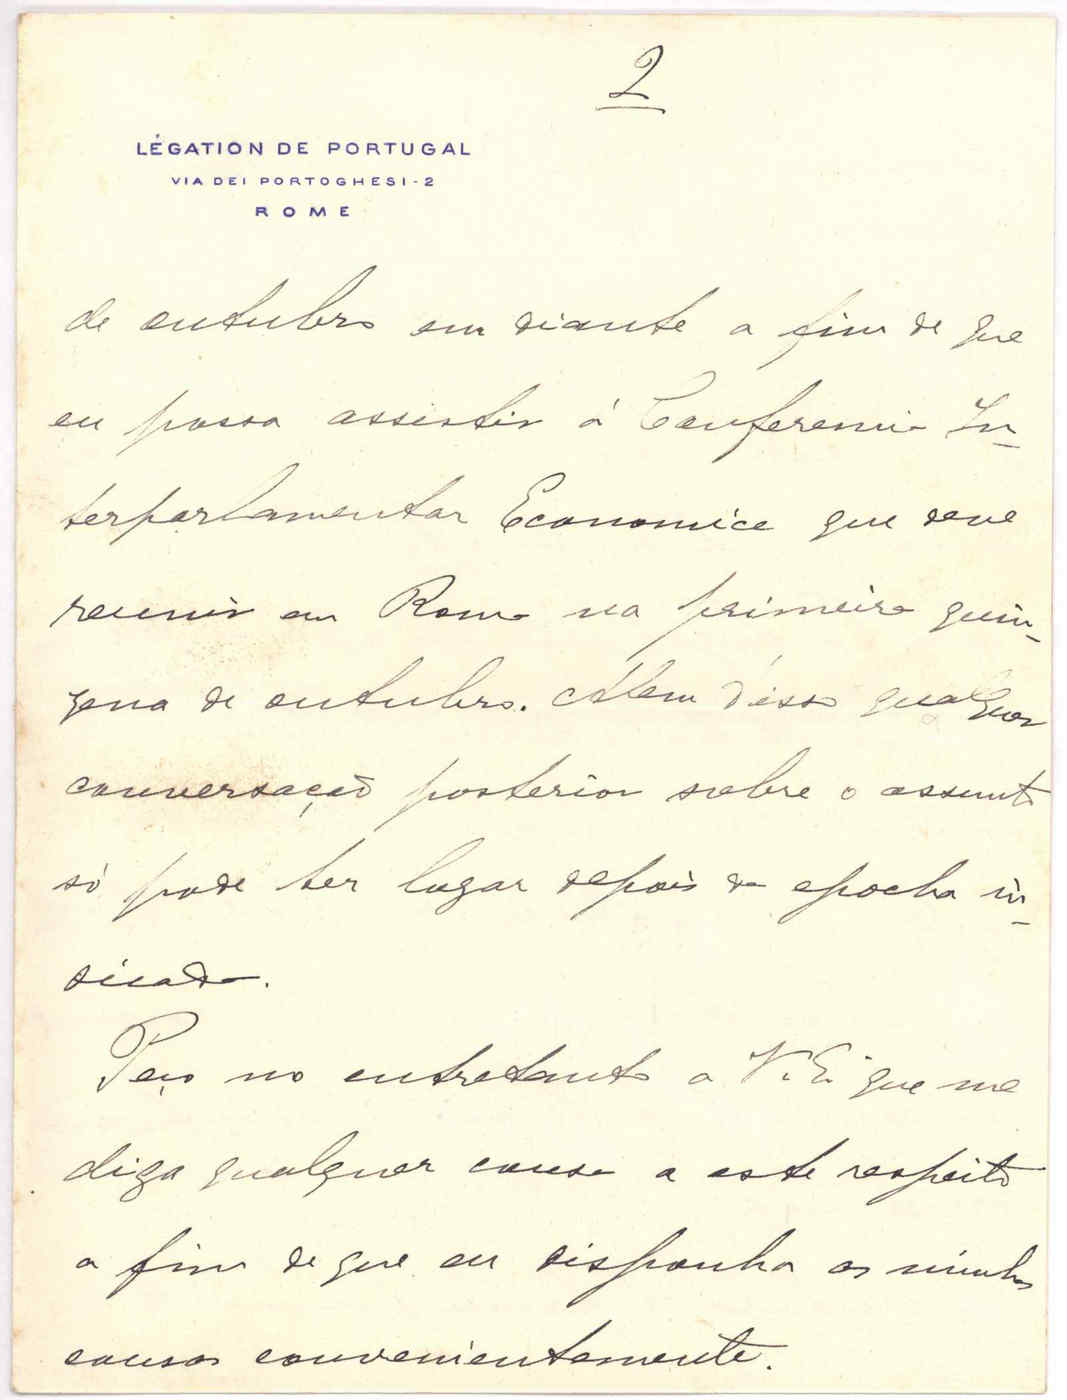 2
LÉGATION DE PORTUGAL
VIA DEI PORTOGHESI - 2
ROME
de outubro em diante a fim de que
eu possa assistir á Conferencia In-
terparlamentar Economica que deve
reunir em Roma na primeira quin-
zena de outubro. Alem d'isso qualquer
conversação posterior sobre o assunto
só pode ter lugar depois da epocha in-
dicada.
Peço no entretanto a V. Ex. que me
diga qualquer cousa a este respeito
a fim de que eu disponha as minhas
cousas convenientemente.